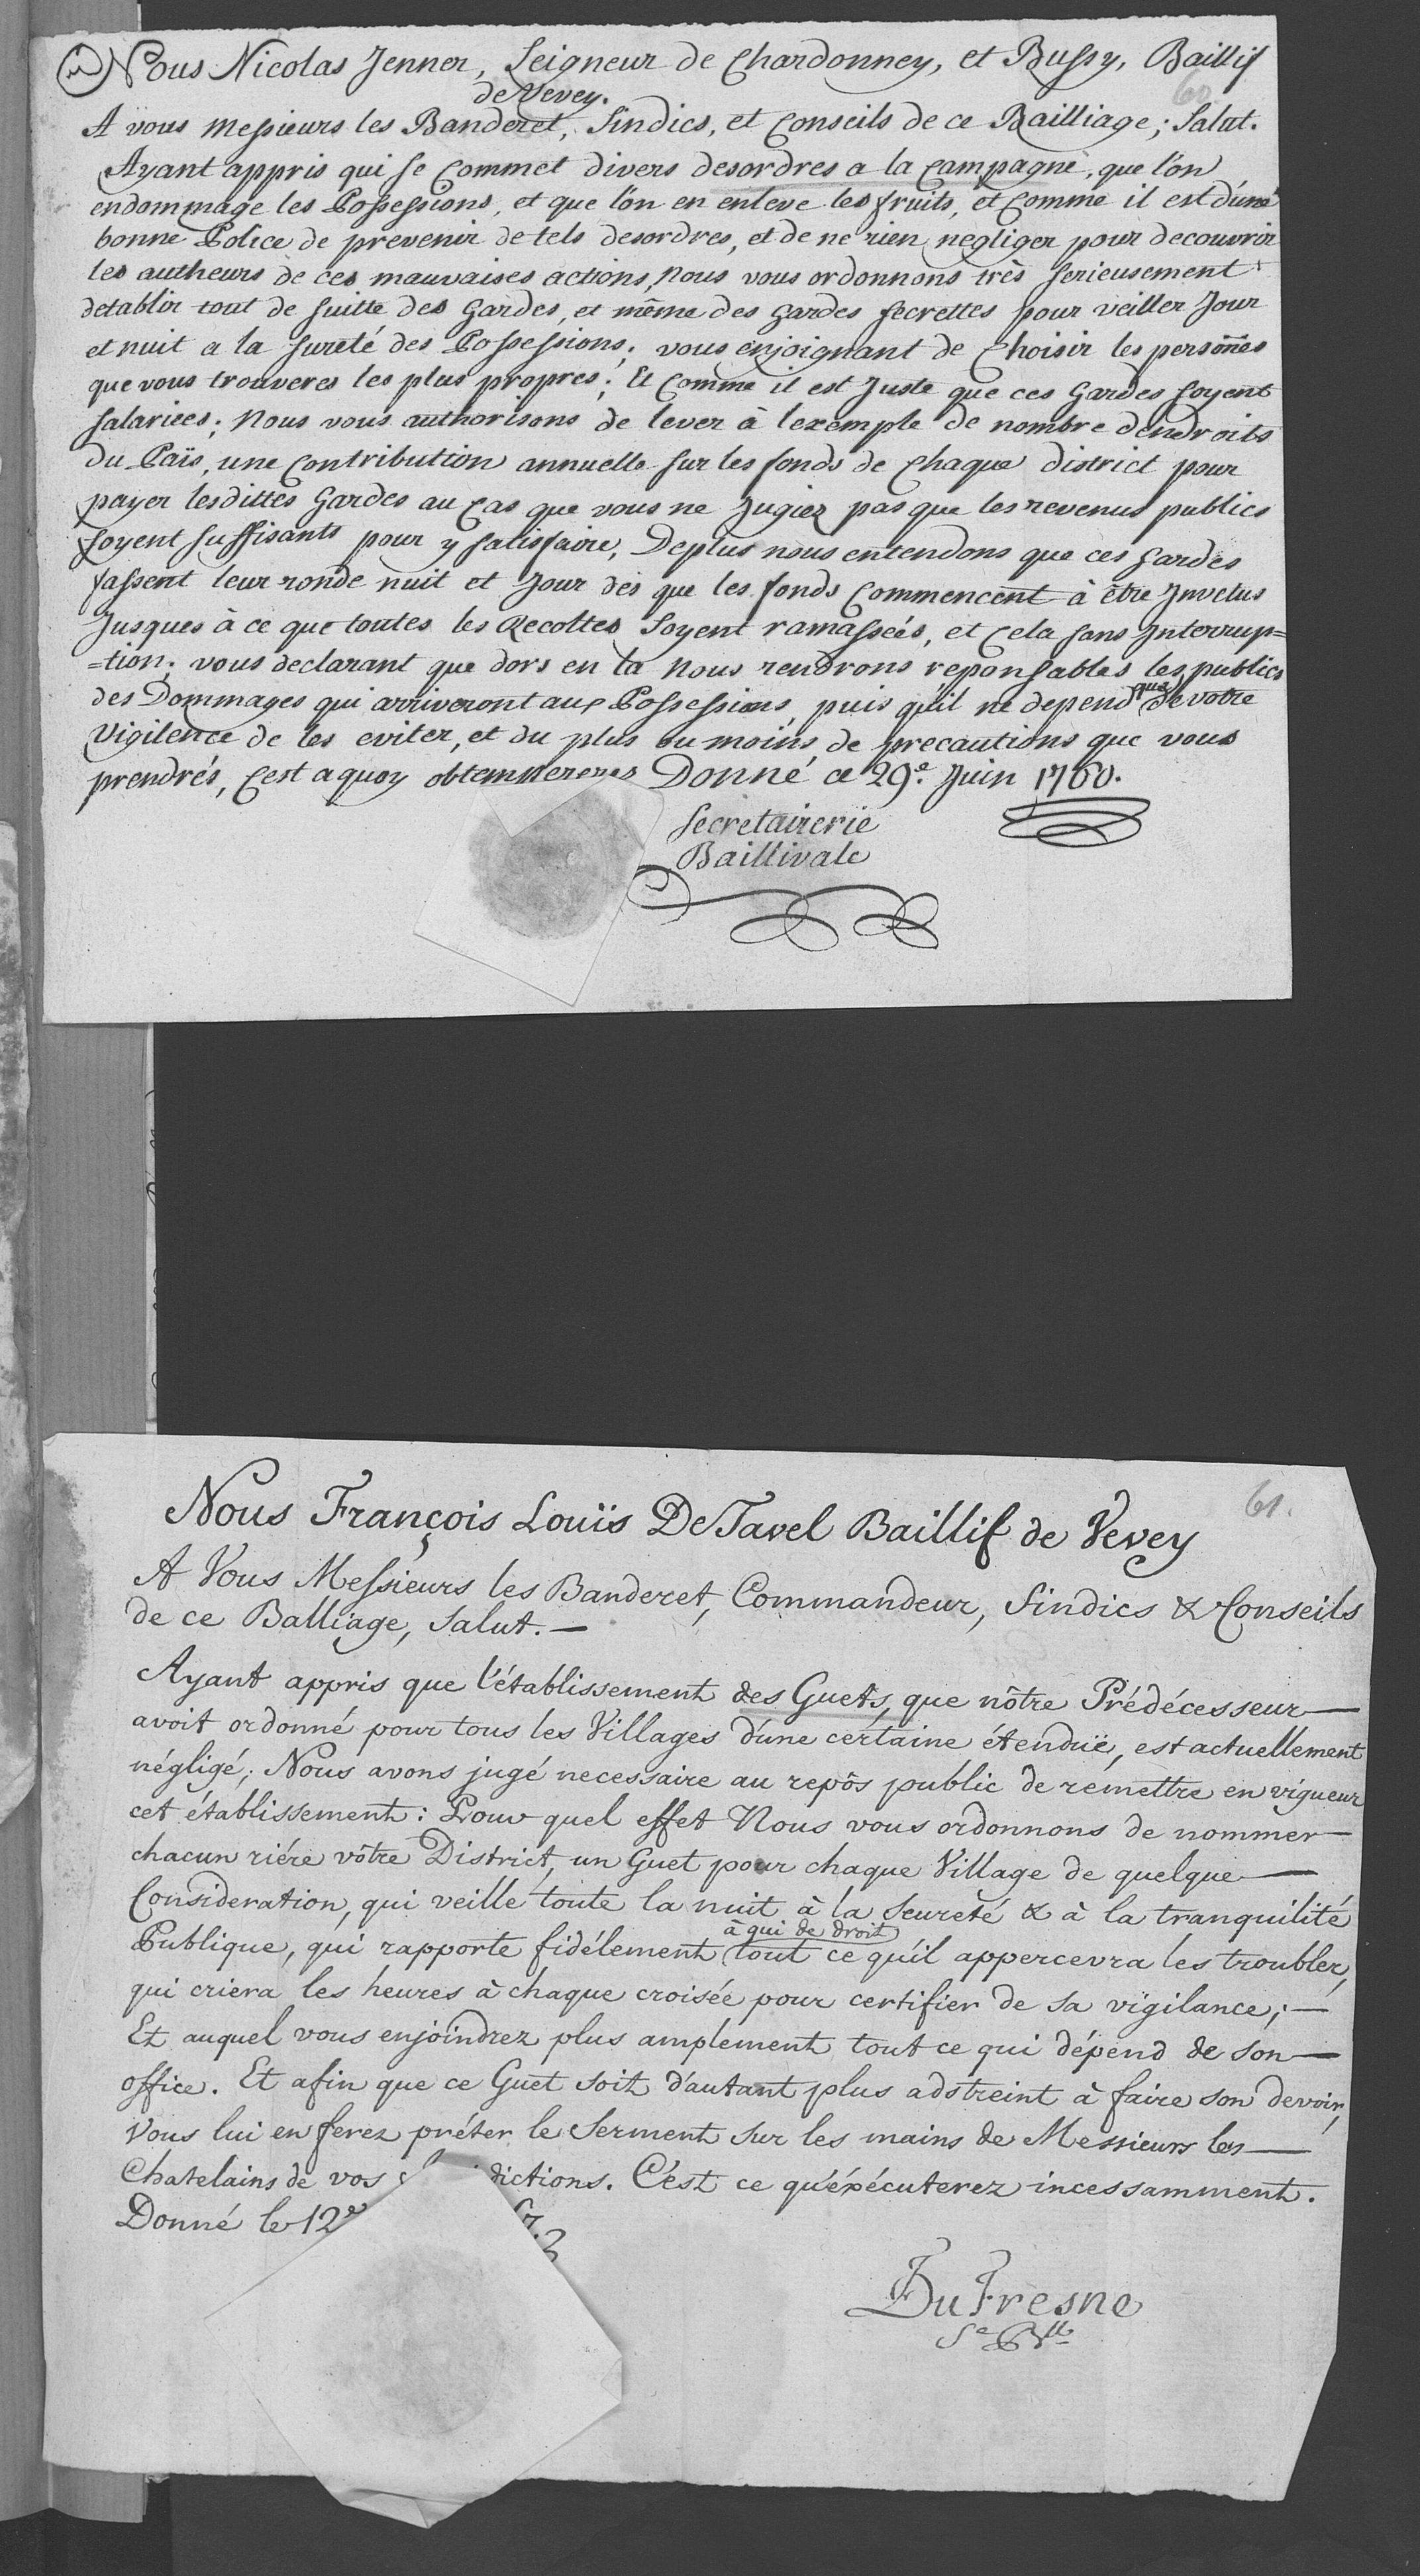 Nous Nicolas Jenner, Seigneur de Chardonney, et Bussy, Baillif
de Vevey.
60
A vous Messieurs les Banderet, Sindics, et Conseils de ce Bailliage; Salut.
Ayant appris qui se Commet divers desordres a la Campagne, que l'on
endommage les Possessions, et que l'on en enleve les fruits, et Comme il est d'une
bonne Police de prevenir de tels desordres, et de ne rien negliger pour decouvrir
les autheurs de ces mauvaises actions, Nous vous ordonnons très serieusement
detablir tout de suitte des Gardes, et même des gardes secrettes pour veiller Jour
et nuit a la sureté des Possessions; vous enjoignant de Choisir les persoñes
que vous trouveres les plus propres; Et Comme il est Juste que ces Gardes soyent
salariées; Nous vous authorisons de lever à lexemple de nombre dendroits
du Païs, une Contribution annuelle sur les fonds de chaque district pour
payer lesdittes Gardes au Cas que vous ne Jugiez pas que les revenus publics
soyent suffisants pour y satisfaire, Deplus nous entendons que ces Gardes
fassent leur ronde nuit et Jour dès que les fonds Commencent à être Jnvetus
Jusques à ce que toutes les Recoltes soyent ramassées, et Cela sans Jnterrup=
=tion; vous declarant que dors en la Nous rendrons reponsables les publics
des Dommages qui arriveront aux Possessions, puis qu'il ne depend que de votre
Vigilence de les eviter, et du plus ou moins de precautions que vous
prendrés, Cest aquoy obtempereres Donné ce 29.e Juin 1760.
Secretairerie
Baillivale
61.
Nous François Louïs De Tavel Baillif de Vevey
A Vous Messieurs les Banderet, Commandeur, Sindics & Conseils
de ce Balliage, Salut. —
Ayant appris que l'établissement des Guets, que nôtre Prédécesseur —
avoit ordonné pour tous les Villages d'une certaine étenduë, est actuellement
négligé; Nous avons jugé necessaire au repôs public de remettre en vigueur
cet établissement: Pour quel effet Nous vous ordonnons de nommer —
chacun riére vôtre District, un Guet pour chaque Village de quelque —
Consideration, qui veille toute la nuit à la Seureté & à la tranquilité
à qui de droit
Publique, qui rapporte fidélement tout ce qu'il appercevra les troubler,
qui criera les heures à chaque croisée pour certifier de sa vigilance; —
Et auquel vous enjoindrez plus amplement tout ce qui dépend de son —
office. Et afin que ce Guet soit d'autant plus adstreint à faire son devoir,
Vous lui en ferez prêter le Serment sur les mains de Messieurs les —
Chatelains de vos dictions. C'est ce qu'éxécuterez incessamment.
Donné le 12e
DuFresne